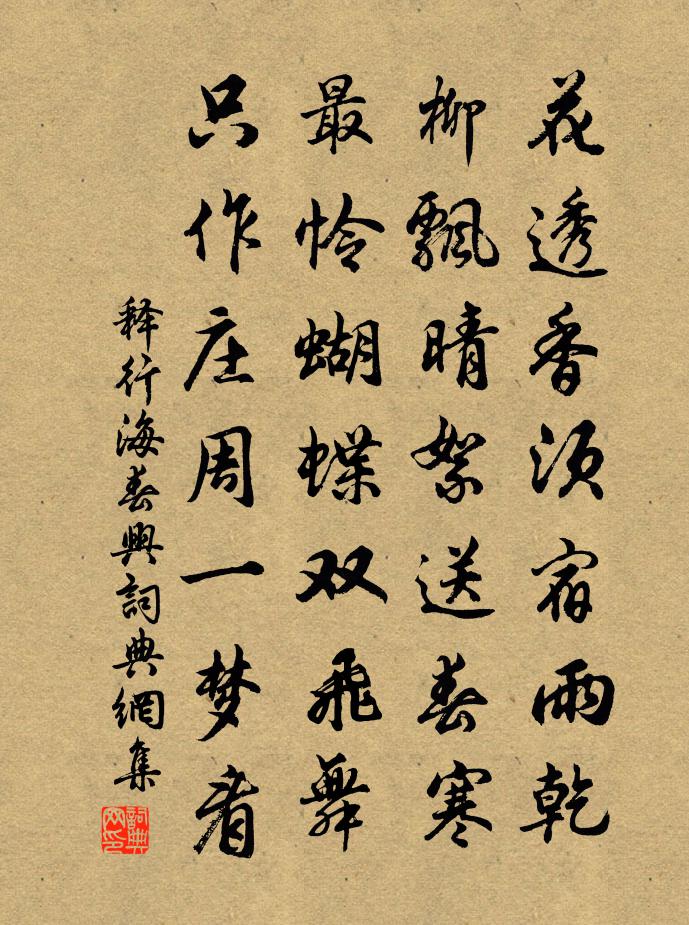 花透香须宿雨乾
柳飘晴絮送春寒
最怜蝴蝶双飞舞
只作庄周一梦看
释行海春興詞典網集
詞典网印